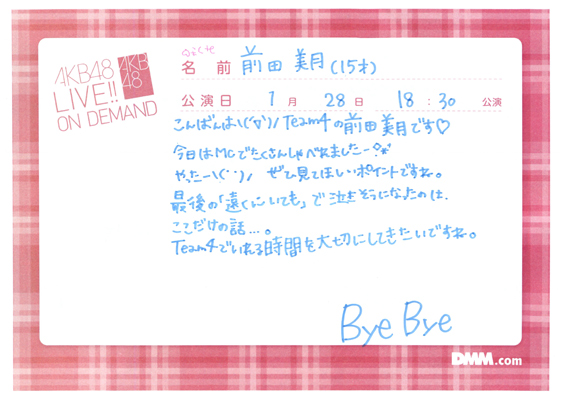 AKB48
LIVE!!
ON DEMAND
AKB
48
名前 前田 美月 (15才)
公演日 1月 28日 18:30 公演
こんばんは\(^▽^)/Team4の前田美月です♡
今日はMCでたくさんしゃべれましたー
やったー\(^^)/ ぜひ見てほしいポイントですね。
最後の「遠くにいても」で泣きそうになったのは、
ここだけの話…。
Team4でいれる時間を大切にしてきたいですね。
Bye Bye
DMM.com